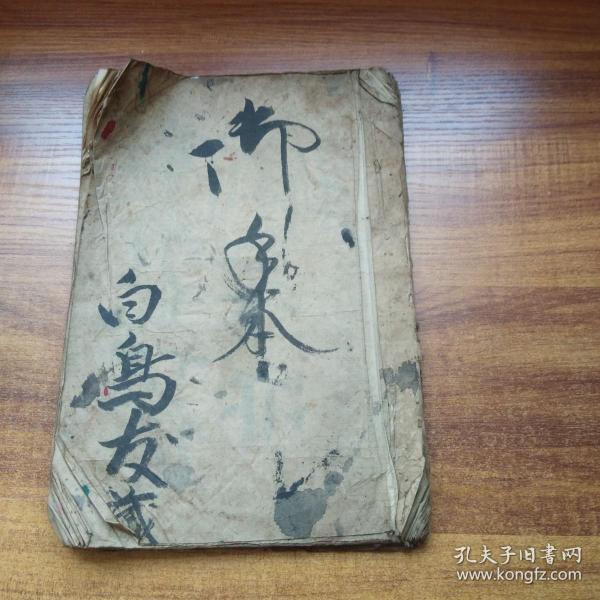 御手本
白鳥友蔵
孔夫子旧書网
www.kongfz.com